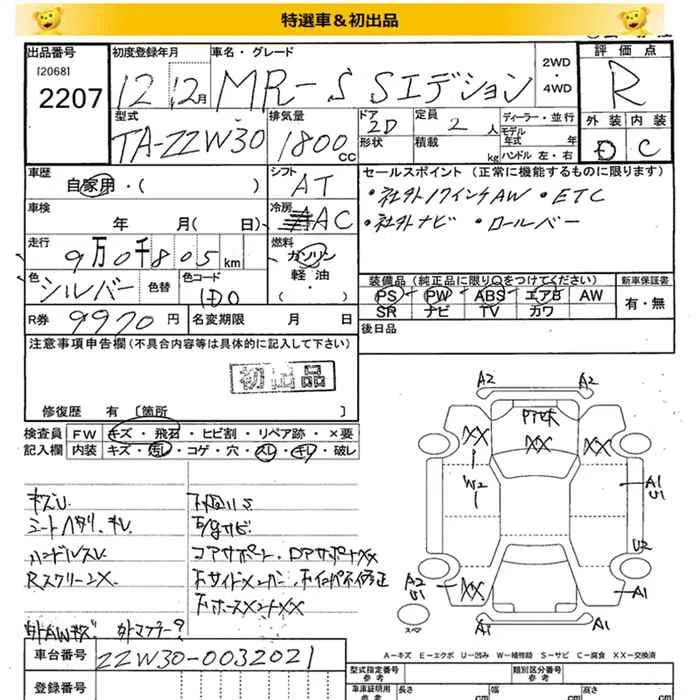 特選車＆初出品
出品番号 初度登録年月 車名・グレード 2WD・4WD 評価点
[2068]
2207 12 12月 MR-S Sエデション R
型式 排気量 ドア 定員 ディーラー・並行 外装 内装
TA-ZZW30 1800cc 2D 2人 モデル年式 年 D C
形状 積載 kg ハンドル 左・右
車歴 シフト セールスポイント (正常に機能するものに限ります)
自家用・( ) AT ・社外17インチAW ・ETC
車検 冷房 ・社外ナビ ・ロールバー
年 月( 日) AC
走行 燃料
9万0千805km ガソリン
色 色替 色コード 軽油 装備品 (純正品に限り○をつけてください) 新車保証書
シルバー 1D0 ・( ) PS PW ABS エアB AW 有・無
R券 9970円 名変期限 月 日 SR ナビ TV カワ
注意事項申告欄(不具合内容等は具体的に記入して下さい) 後日品
初出品
修復歴 有 [箇所 ]
検査員 FW キズ・飛石・ヒビ割・リペア跡・×要
記入欄 内装 キズ・汚レ・コゲ・穴・スレ・キレ・破レ
A2 A2
XX XX XX
W2
A1
U1
キズU
シートハタリ、キレ
ハンドルスレ
Rスクリーン×
U2
A2
U1
XX
A1
スペア
A1 A1
外AWキズ 外マフラー?
A-キズ E-エクボ U-凹み W-補修跡 S-サビ C-腐食 XX-交換済
車台番号 ZZW30-0032021 型式指定番号 参考 類別区分番号 参考
登録番号 車庫証明用 参考 長さ cm 幅 cm 高さ cm